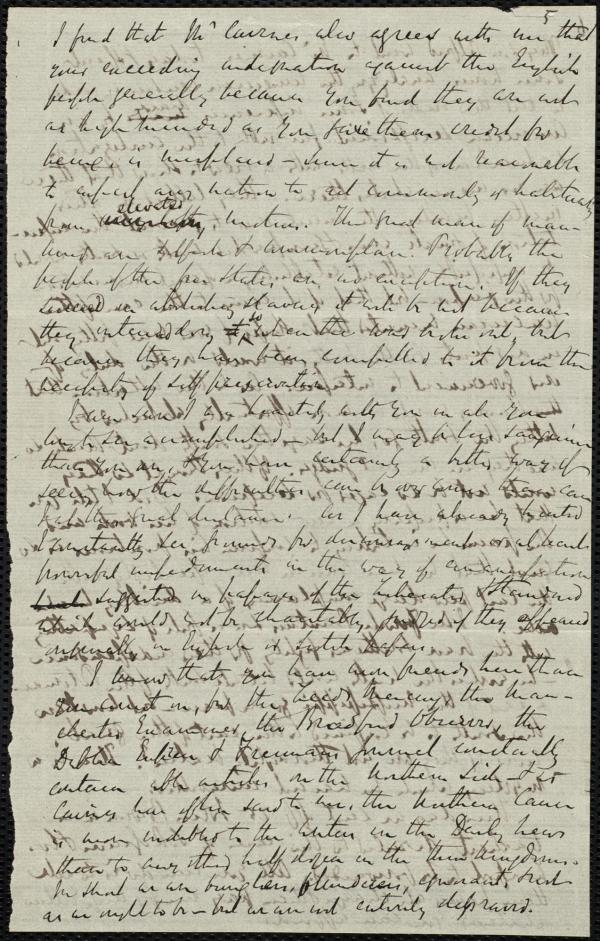 5
I find that Mr Cairnes also agrees with me that
your exceeding indignation against the English
people generally because you find they are not
as high minded as you gave them credit for
being is misplaced – since it is not reasonable
to expect any nation to act commonly or habitually
from elevated motives. The great mass of man-
kind are selfish & Probably the
people of the free States are no exception. If they
succeed in abolishing slavery it will be not because
they intended doing so when the war broke out, but
because they have been compelled to it from the
necessity of self preservation.
I am sure I heartily with you in all you
wish to see accomplished – but I may be less sanguine
than you are, & you have certainly a better way of
seeing how the difficulties can be overcome than I can
have the real . As I have already stated
I constantly see grounds for discouragement & at least
powerful impediments in the way of emancipation
suggested in papers of the Liberator & Standard
which would not be charitably judged if they appeared
originally in English or Scotch papers.
I know that you have more friends here than
you count on, for the Leeds Mercury, the Man-
chester Examiner, the Bradford Observer, the
Dublin Express & Freemans Journal constantly
contain able articles on the Northern side – & as
Cairnes has often said to me, the Northern Cause
is more indebted to the writers in the Daily News
than to any other half dozen in the three kingdoms.
In short we are bunglers, blunderers, ignorant, not
as we ought to be – but we are not entirely depraved.